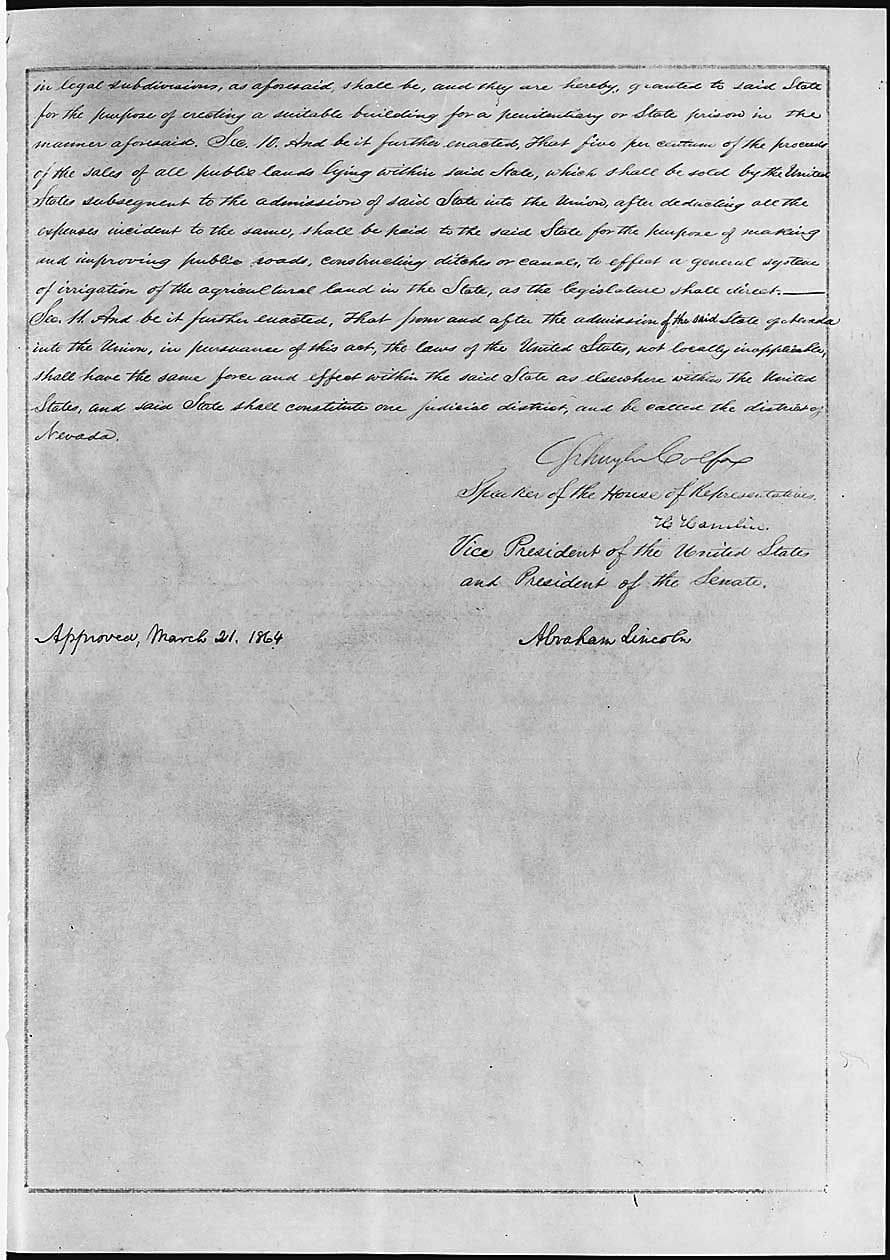 in legal subdivisions, as aforesaid, shall be, and they are hereby, granted to said State
for the purpose of erecting a suitable building for a penitentiary or State prison in the
manner aforesaid. Sec. 10. And be it further enacted, That five per centum of the proceeds
of the sales of all public lands lying within said State, which shall be sold by the United
States subsequent to the admission of said State into the Union, after deducting all the
expenses incident to the same, shall be paid to the said State for the purpose of making
and improving public roads, constructing ditches or canals, to effect a general system
of irrigation of the agricultural land in the State, as the legislature shall direct.—
Sec. 11. And be it further enacted, That from and after the admission of the said State of Nevada
into the Union, in pursuance of this act, the laws of the United States, not locally inapplicable,
shall have the same force and effect within the said State as elsewhere within the United
States, and said State shall constitute one judicial district, and be called the district of
Nevada.
Schuyler Colfax
Speaker of the House of Representatives.
H Hamlin.
Vice President of the United States
and President of the Senate.
Approved, March 21. 1864 Abraham Lincoln